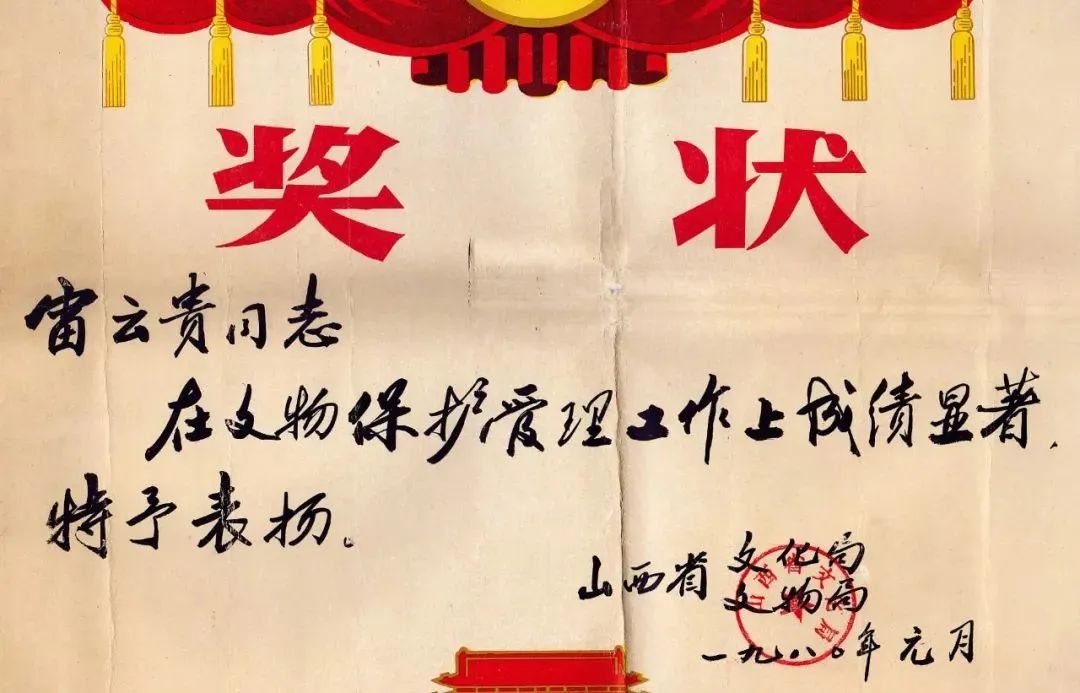 奖状
雷云贵同志
在文物保护管理工作上成绩显著,
特予表扬。
山西省文化局
文物局
一九八〇年元月